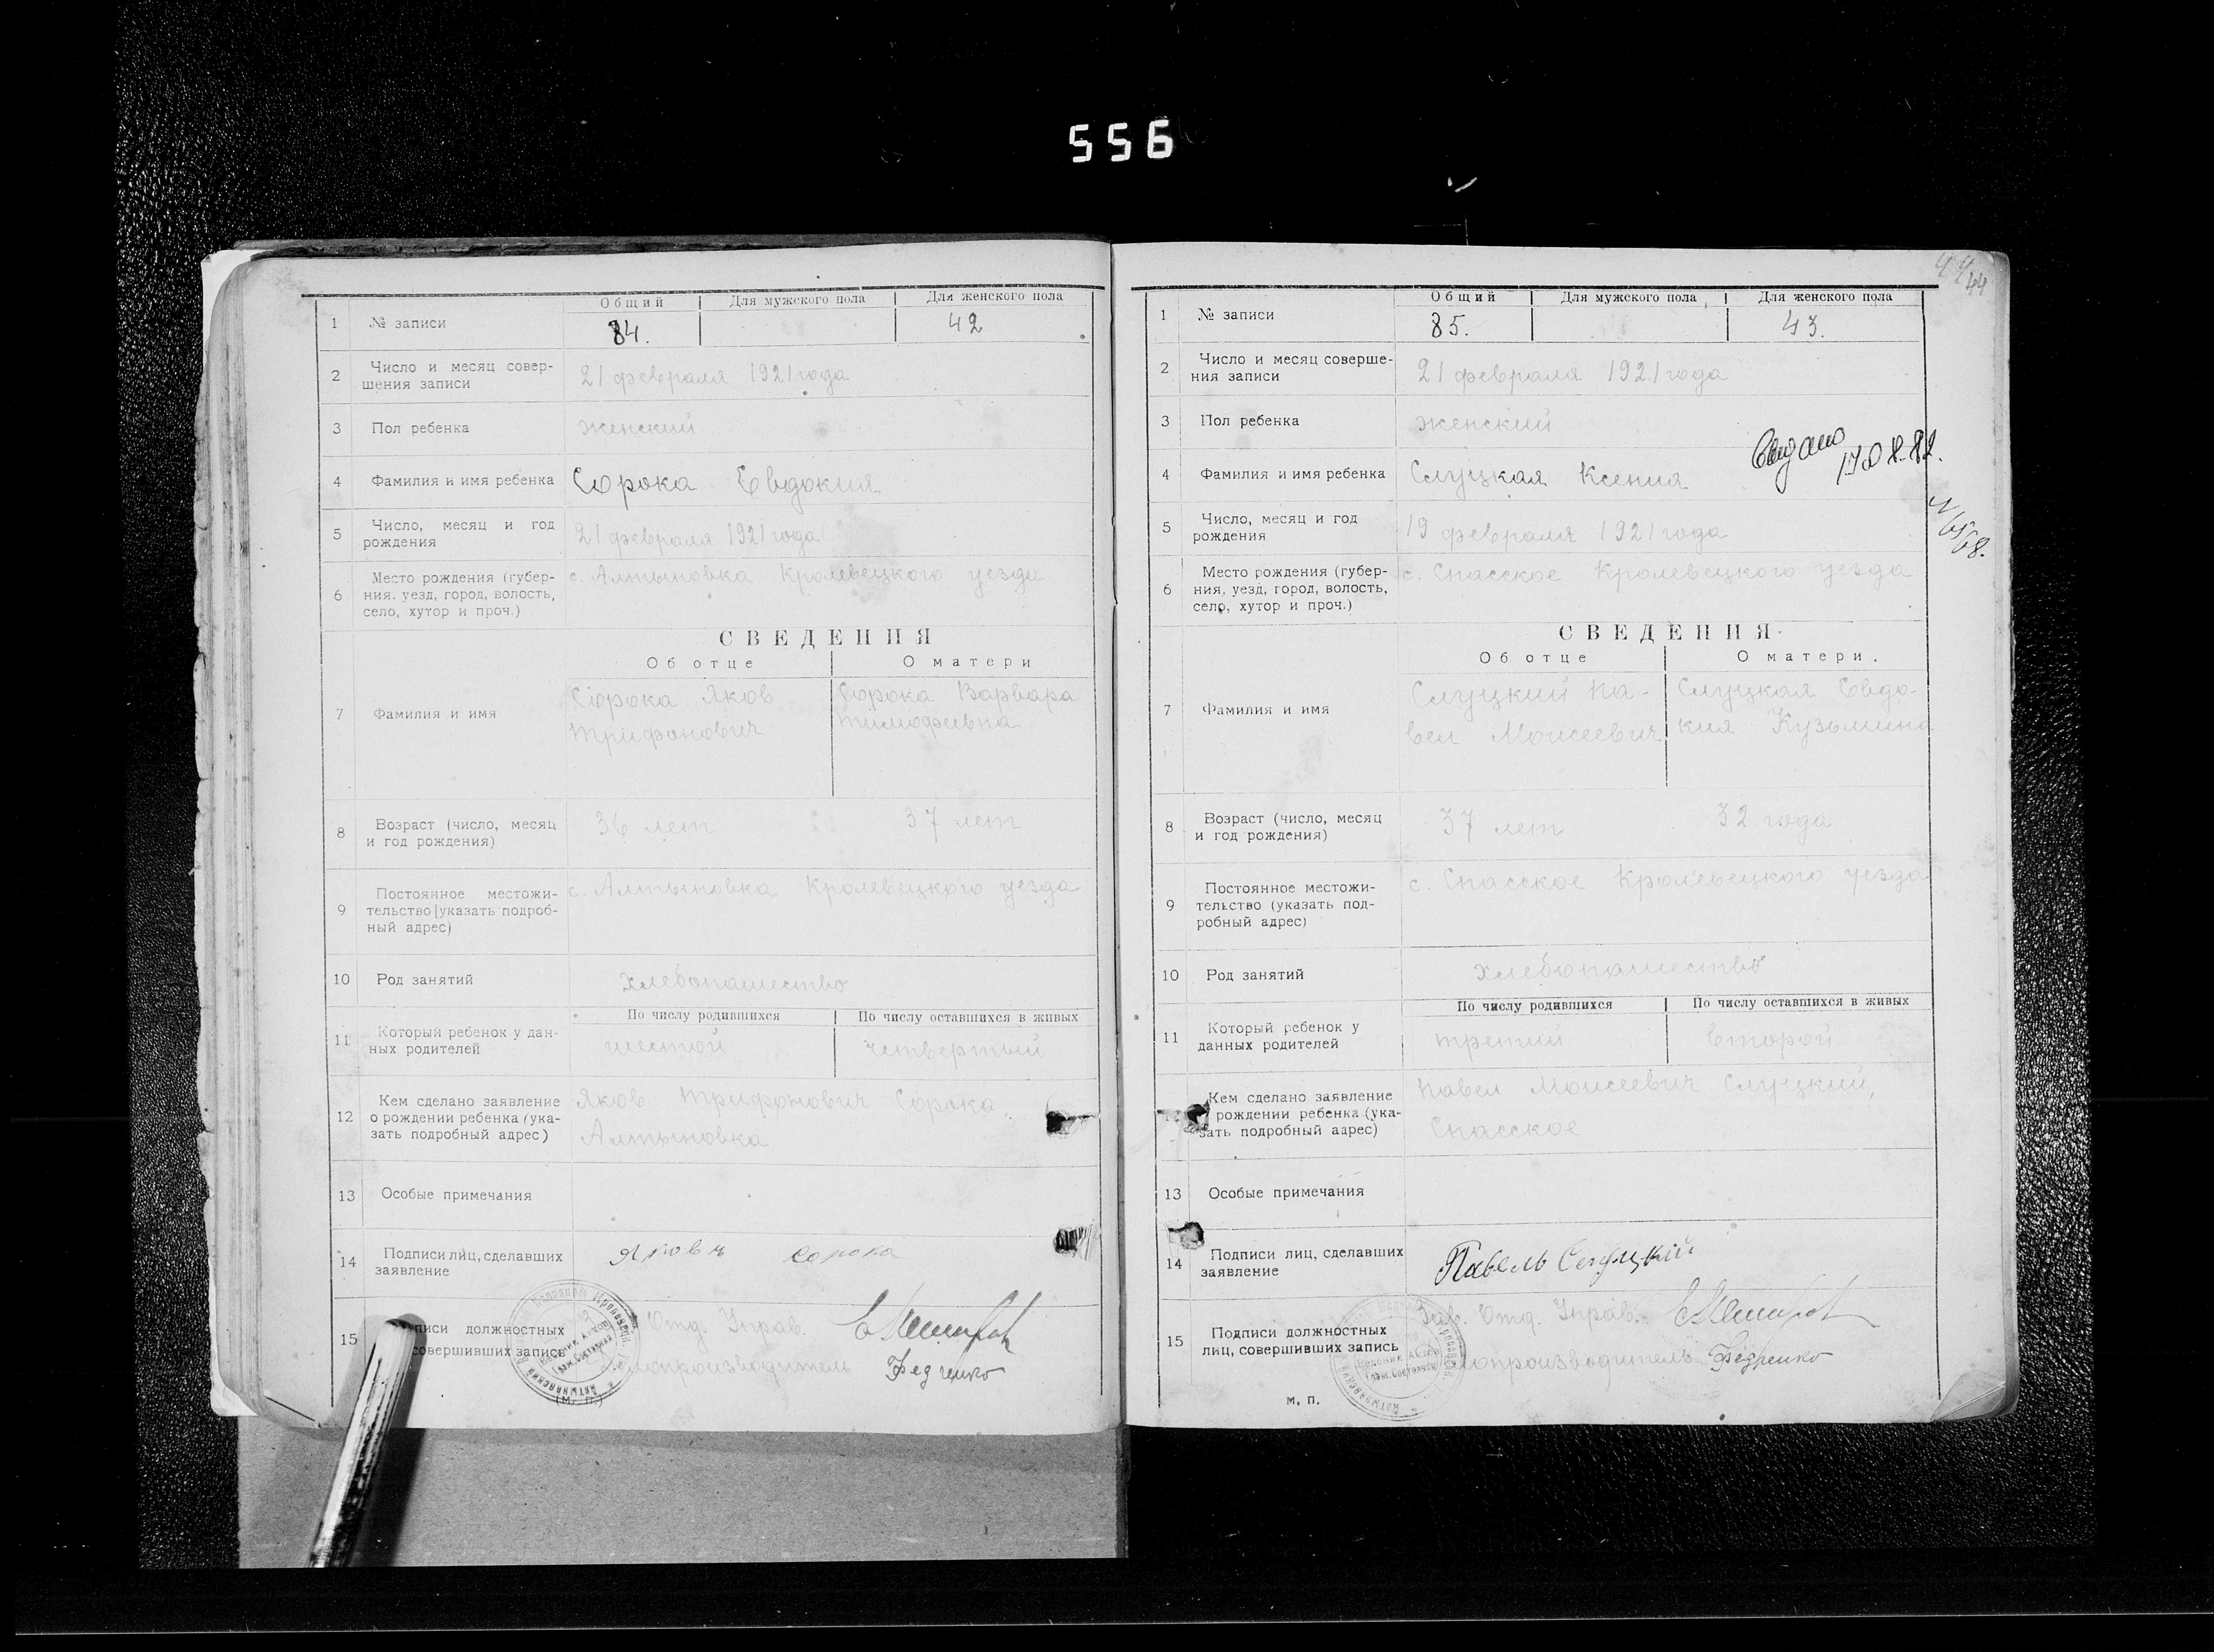 556
44
Общий Для мужского пола Для женского пола
1 № записи 84. 42
2 Число и месяц совер-
шения записи
21 февраля 1921 года
3 Пол ребенка женский
4 Фамилия и имя ребенка Сорока Евдокия
5 Число, месяц и год
рождения
21 февраля 1921 года
6 Место рождения (губер-
ния, уезд, город, волость,
село, хутор и проч.)
с. Алтыновка Кролевецкого уезда
СВЕДЕНИЯ
Об отце О матери
7 Фамилия и имя
Сорока Яков
Трифонович
Сорока Варвара
Тимофеевна
8 Возраст (число, месяц
и год рождения)
36 лет 37 лет
9 Постоянное местожи-
тельство [указать подроб-
ный адрес)
с. Алтыновка Кролевецкого уезда
10 Род занятий хлебопашество
По числу родившихся По числу оставшихся в живых
11 Который ребенок у дан-
ных родителей
шестой четвертый
12 Кем сделано заявление
о рождении ребенка (ука-
зать подробный адрес)
Яков Трифонович Сорока,
Алтыновка
13 Особые примечания
14 Подписи лиц, сделавших
заявление
Яковъ Сорока
15 писи должностных
совершивших запись
Отд. Управ.
Федченко
(м. п.)
Общий Для мужского пола Для женского пола
1 № записи 85. 43.
2 Число и месяц соверше-
ния записи
21 февраля 1921 года
3 Пол ребенка женский
4 Фамилия и имя ребенка Слуцкая Ксения
5 Число, месяц и год
рождения
19 февраля 1921 года
6 Место рождения (губер-
ния, уезд, город, волость,
село, хутор и проч.)
с. Спасское Кролевецкого уезда
СВЕДЕНИЯ
Об отце О матери.
7 Фамилия и имя
Слуцкий Па-
вел Моисеевич
Слуцкая Евдо-
кия Кузьмина
8 Возраст (число, месяц
и год рождения)
37 лет 32 года
9 Постоянное местожи-
тельство (указать под-
робный адрес)
с. Спасское Кролевецкого уезда
10 Род занятий хлебопашество
По числу родившихся По числу оставшихся в живых
11 Который ребенок у
данных родителей
третий второй
Кем сделано заявление
рождении ребенка (ука-
зать подробный адрес)
Павел Моисеевич Слуцкий,
Спасское
13 Особые примечания
14 Подписи лиц, сделавших
заявление
Павелъ Слуцкій
15 Подписи должностных
лиц, совершивших запись
Зав. Отд. Управ.
м. п.